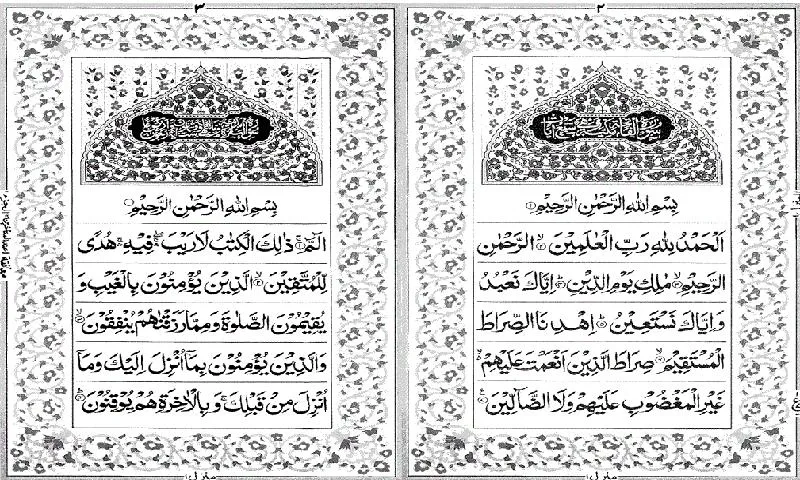 ٢
بِسْمِ اللّٰهِ الرَّحْمٰنِ الرَّحِيْمِ ۝۱
اَلْحَمْدُ لِلّٰهِ رَبِّ الْعٰلَمِيْنَ ۝۲ الرَّحْمٰنِ
الرَّحِيْمِ ۝۳ مٰلِكِ يَوْمِ الدِّيْنِ ۝۴ اِيَّاكَ نَعْبُدُ
وَ اِيَّاكَ نَسْتَعِيْنُ ۝۵ اِهْدِنَا الصِّرَاطَ
الْمُسْتَقِيْمَ ۝۶ صِرَاطَ الَّذِيْنَ اَنْعَمْتَ عَلَيْهِمْ
غَيْرِ الْمَغْضُوْبِ عَلَيْهِمْ وَلَا الضَّآلِّيْنَ ۝۷
منزل ۱
٣
بِسْمِ اللّٰهِ الرَّحْمٰنِ الرَّحِيْمِ
الٓمّٓ ۝۱ ذٰلِكَ الْكِتٰبُ لَا رَيْبَ فِيْهِ هُدًى
لِّلْمُتَّقِيْنَ ۝۲ الَّذِيْنَ يُؤْمِنُوْنَ بِالْغَيْبِ وَ
يُقِيْمُوْنَ الصَّلٰوةَ وَ مِمَّا رَزَقْنٰهُمْ يُنْفِقُوْنَ ۝۳
وَالَّذِيْنَ يُؤْمِنُوْنَ بِمَآ اُنْزِلَ اِلَيْكَ وَمَآ
اُنْزِلَ مِنْ قَبْلِكَ وَ بِالْاٰخِرَةِ هُمْ يُوْقِنُوْنَ ۝۴
منزل ۱